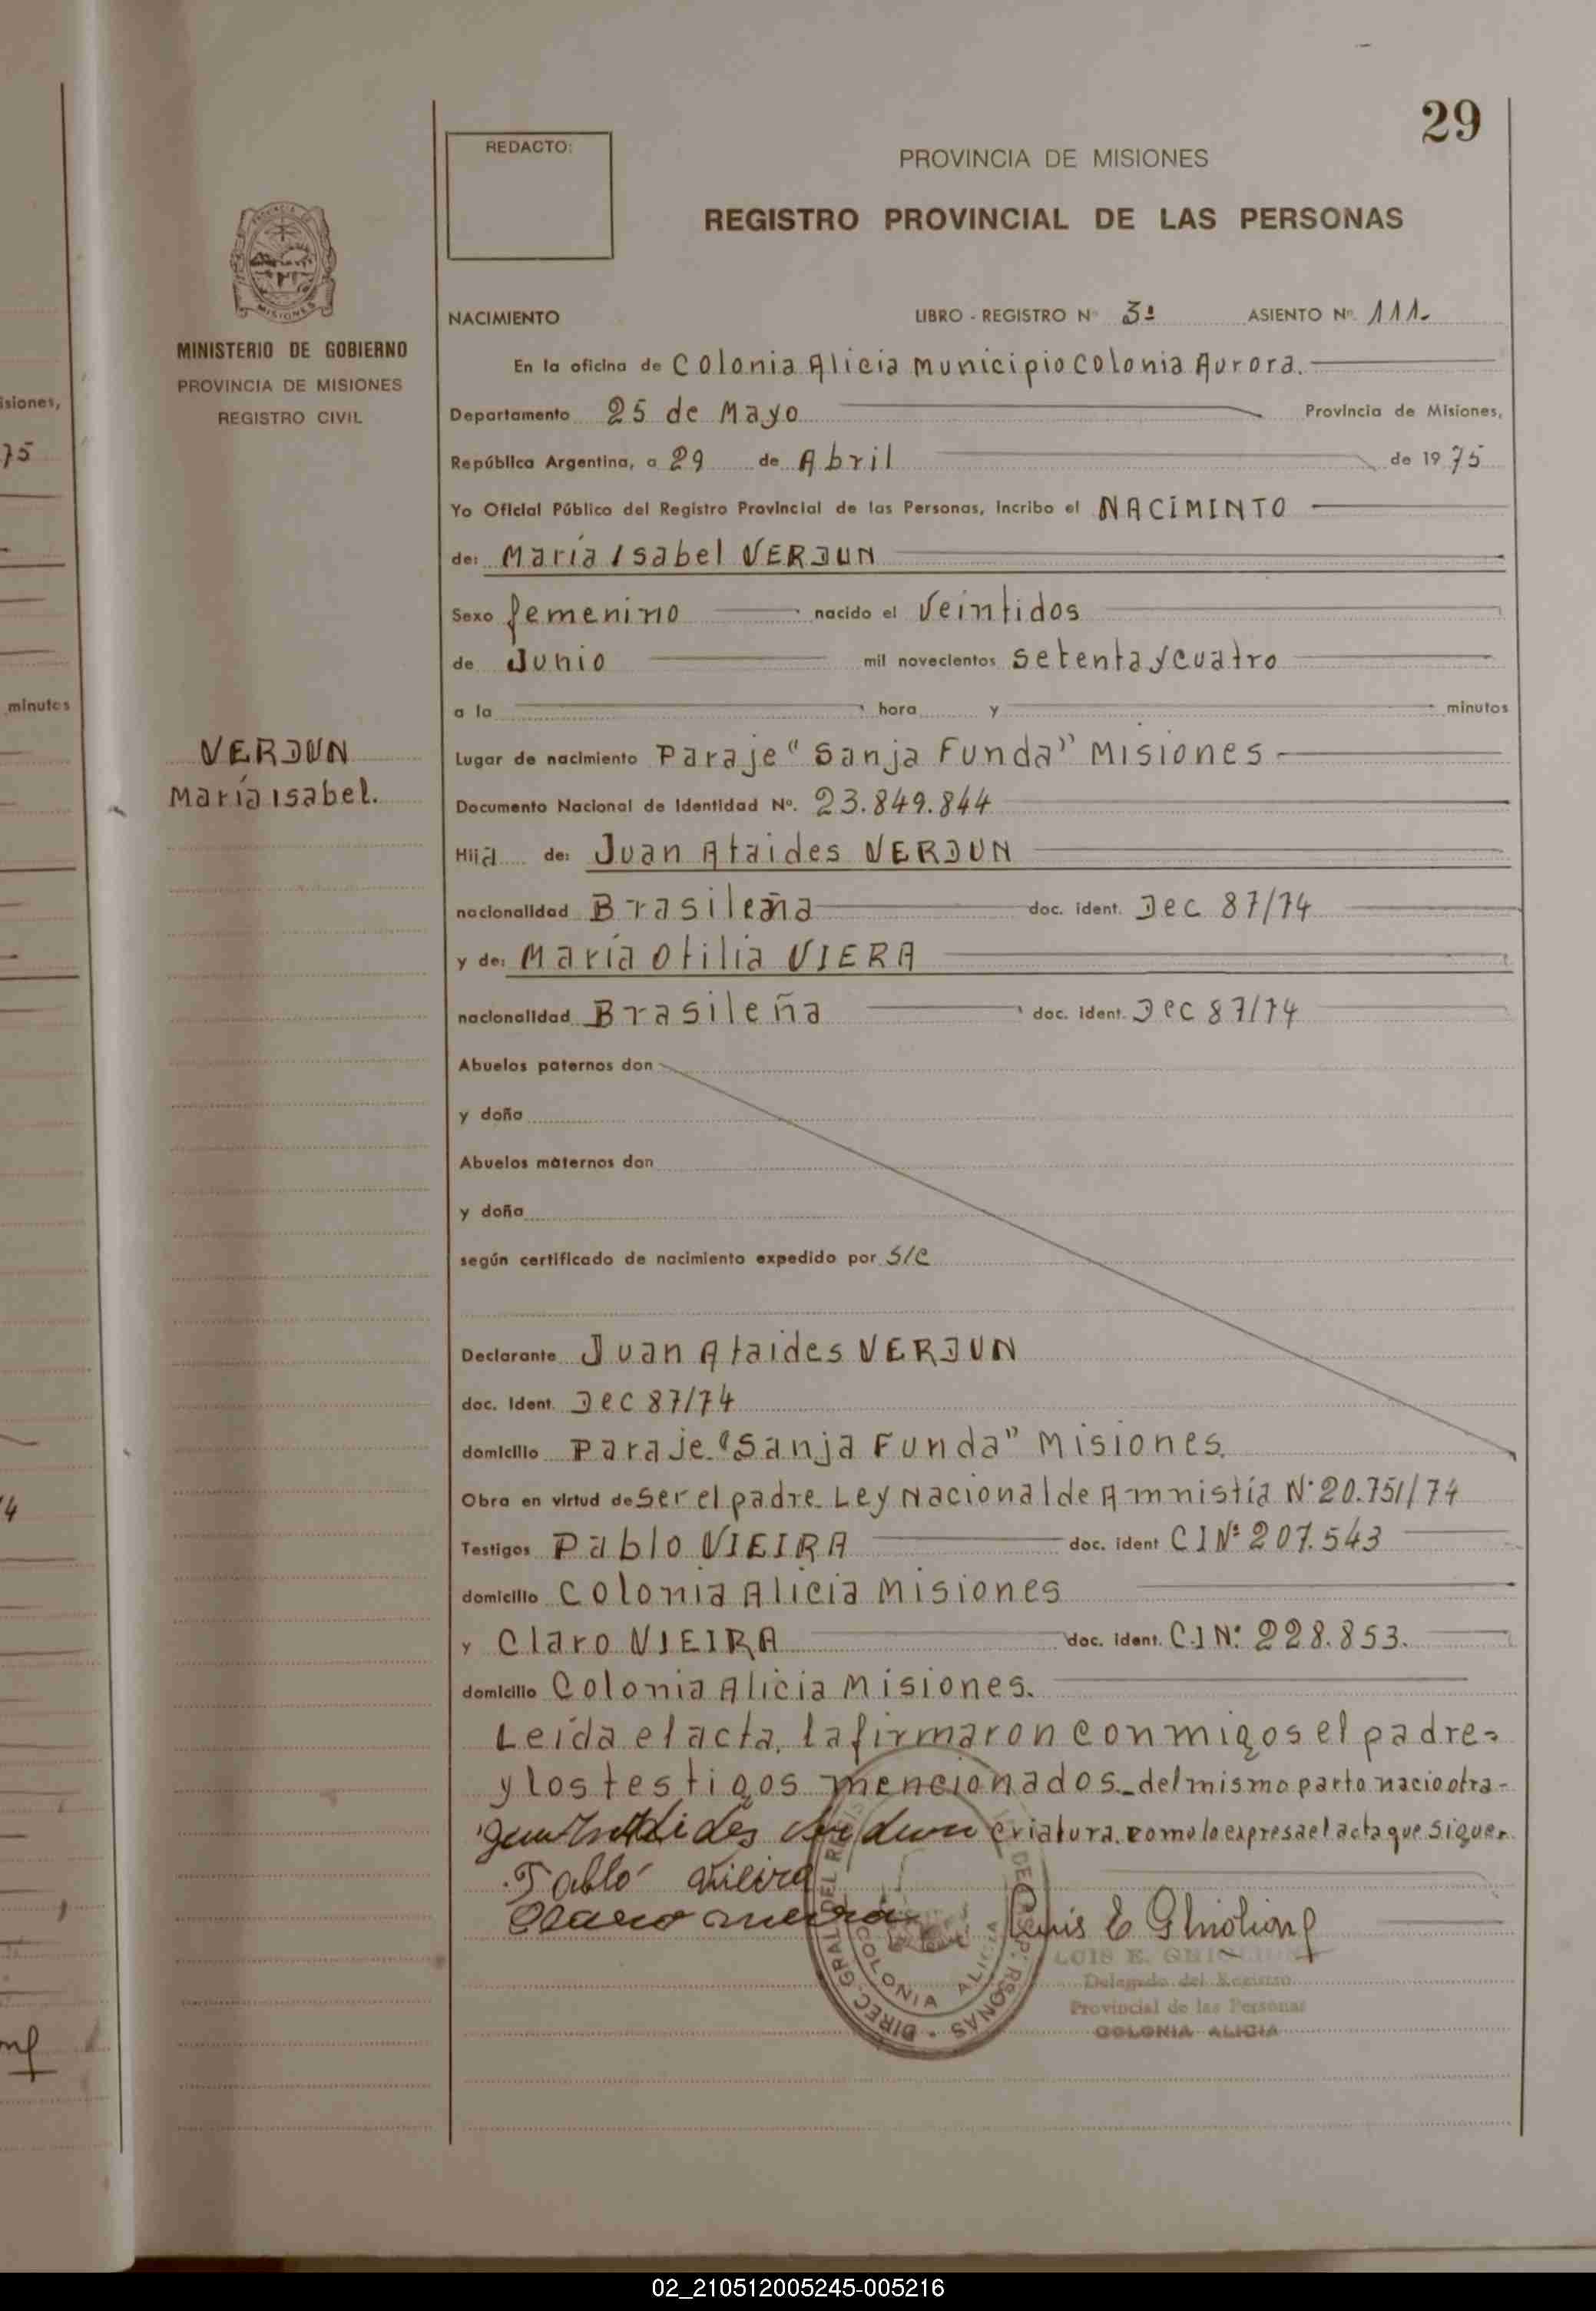 29
REDACTO:
PROVINCIA DE MISIONES
REGISTRO PROVINCIAL DE LAS PERSONAS
MISIONES
MINISTERIO DE GOBIERNO
PROVINCIA DE MISIONES
REGISTRO CIVIL
isiones,
75
minutos
VERDUN
María Isabel.
NACIMIENTO LIBRO - REGISTRO Nº 3º ASIENTO Nº. 111.
En la oficina de Colonia Alicia Municipio Colonia Aurora.
Departamento 25 de Mayo Provincia de Misiones,
República Argentina, a 29 de Abril de 1975
Yo Oficial Público del Registro Provincial de las Personas, incribo el NACIMINTO
de: María Isabel VERDUN
Sexo femenino nacido el Veintidos
de Junio mil novecientos setenta y cuatro
a la hora y minutos
Lugar de nacimiento Paraje "Sanja Funda" Misiones
Documento Nacional de Identidad Nº. 23.849.844
Hija de: Juan Ataides VERDUN
nacionalidad Brasileña doc. ident. Dec 87/74
y de: María Otilia VIERA
nacionalidad Brasileña doc. ident. Dec 87/74
Abuelos paternos don
y doña
Abuelos maternos don
y doña
según certificado de nacimiento expedido por S/C
Declarante Juan Ataides VERDUN
doc. ident. Dec 87/74
domicilio Paraje "Sanja Funda" Misiones.
Obra en virtud de Ser el padre Ley Nacional de Amnistía Nº 20.751/74
Testigos Pablo VIEIRA doc. ident CI Nº 207.543
domicilio Colonia Alicia Misiones
y Claro VIEIRA doc. ident. C.I Nº 228.853.
domicilio Colonia Alicia Misiones.
Leída el acta, la firmaron conmigos el padre
y los testigos mencionados. del mismo parto nacio otra
criatura. como lo expresa el acta que sigue.
Pablo Vieira
Luis E Ghiolion
DIREC. GRAL DEL REGIS DE PERSONAS
COLONIA ALICIA
LUIS E.
Delegado del Registro
Provincial de las Personas
COLONIA ALICIA
02_210512005245-005216